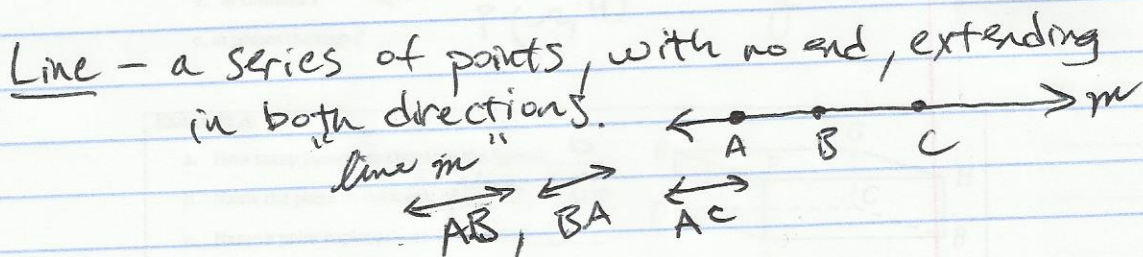 Line – a series of points, with no end, extending
in both directions.
m
A B C
"line m"
AB, BA AC